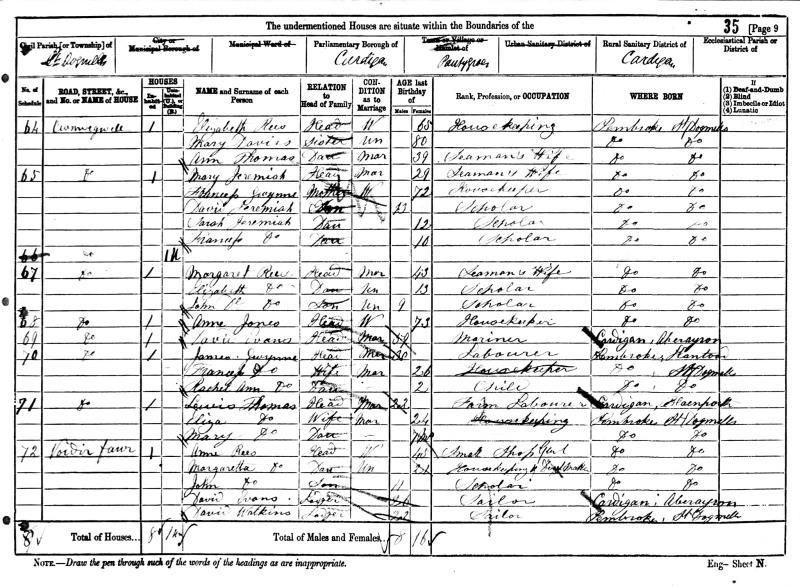 The undermentioned Houses are situate within the Boundaries of the
35 [Page 9
Civil Parish [or Township] of
St Dogmells
City or Municipal Borough of
Municipal Ward of
Parliamentary Borough of
Cardigan
Town or Village or Hamlet of
Urban Sanitary District of
Rural Sanitary District of
Cardigan
Ecclesiastical Parish or District of
No. of Schedule
ROAD, STREET, &c., and No. or NAME of HOUSE
HOUSES
NAME and Surname of each Person
RELATION to Head of Family
CONDITION as to Marriage
AGE last Birthday of
Males Females
Rank, Profession, or OCCUPATION
WHERE BORN
If
(1) Deaf-and-Dumb
(2) Blind
(3) Imbecile or Idiot
(4) Lunatic
64 1 Elizabeth Rees Head W 65 Housekeeping Pembroke St Dogmells
Mary Davies Sister Un 80 Do Do
Ann Thomas Daur Mar 39 Seaman's Wife Do Do
65 Do 1 Mary Jeremiah Head Mar 29 Seaman's Wife Do Do
Frances Gwynne Mother W 72 Housekeeper Do Do
David Jeremiah Scholar Do Do
Sarah Jeremiah Daur 12 Scholar Do Do
Frances Do Daur 10 Scholar Do Do
66 Do 1U
67 Do 1 Margaret Rees Head Mar 43 Seaman's Wife Do Do
Elizabeth Do Daur Un 13 Scholar Do Do
John Do Son Un 9 Scholar Do Do
68 Do 1 Anne Jones Head W 73 Housekeeper Do Do
69 Do 1 David Evans Head Mar 59 Mariner Cardigan, Aberayron
70 Do 1 James Gwynne Head Mar 30 Labourer Pembroke, Nantood
Frances Do Wife Mar 26 Housekeeper Do St Dogmells
Rachel Ann Do Daur 2 Child Do Do
71 Do 1 Lewis Thomas Head Mar 22 Farm Labourer Cardigan, Blaenporth
Eliza Do Wife Mar 24 Housekeeping Pembroke St Dogmells
Mary Do Daur Do Do
72 Voidir fawr 1 Anne Rees Head W 45 Small Shop Do Do
Margaretta Do Daur Un 21 Housekeeping Do Do
John Do Son 11 Scholar Do Do
David Evans Lodger Tailor Cardigan, Aberayron
David Watkins Lodger 22 Tailor Pembroke, St Dogmells
8 Total of Houses... 8 1U Total of Males and Females... 8 16
NOTE.—Draw the pen through such of the words of the headings as are inappropriate.
Eng— Sheet N.